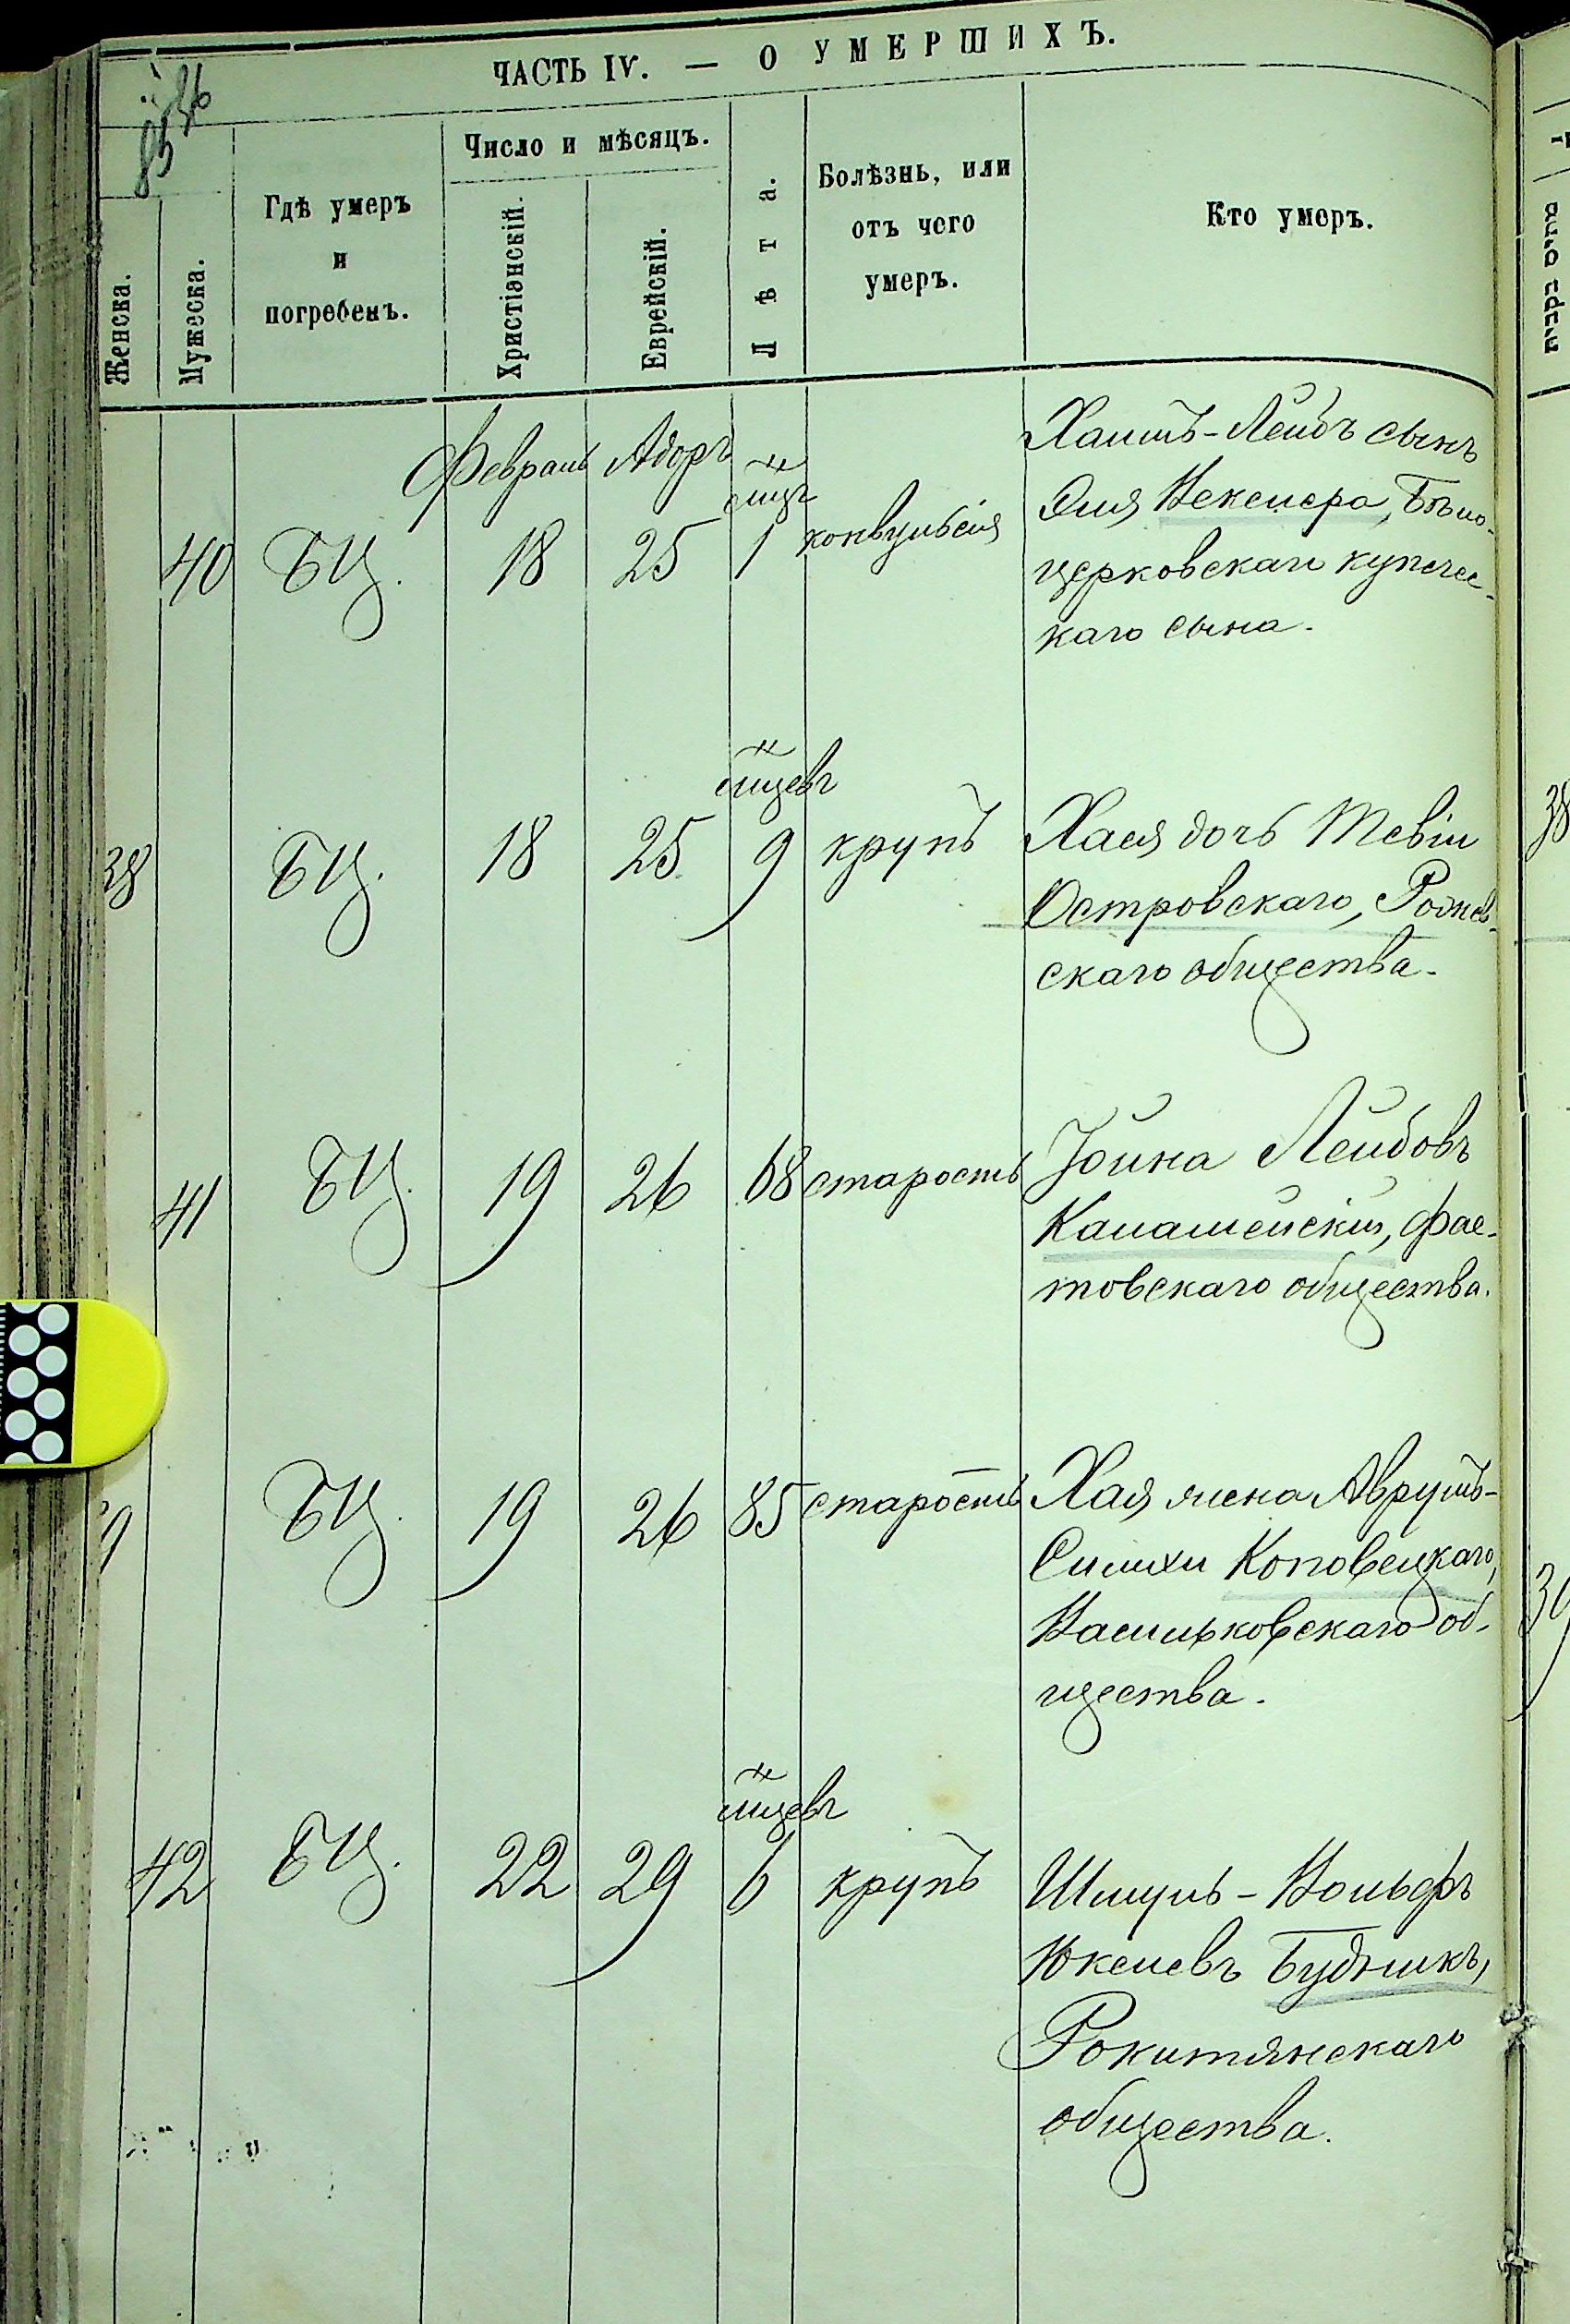 ЧАСТЬ IV. — О УМЕРШИХЪ.
85
Женска.
Мужеска.
Гдѣ умеръ
и
погребенъ.
Число и мѣсяцъ.
Христіанскій.
Еврейскій.
Лѣта.
Болѣзнь, или
отъ чего
умеръ.
Кто умеръ.
Февраль Адоръ
мцъ
40 БЦ. 18 25 1 конвульсія
Хаимъ-Лейбъ сынъ
Эля Векслера, Бѣло-
церковскаго купечес-
каго сына.
мцевъ
38 БЦ. 18 25 9 крупъ
Хася дочь Тевіи
Островскаго, Рожев-
скаго общества.
41 БЦ. 19 26 68 старость
Іойна Лейбовъ
Фас-
товскаго общества.
БЦ. 19 26 85 старость
Хая жена Аврумъ-
Симхи Коповецкаго,
Васильковскаго об-
щества.
мцевъ
42 БЦ. 22 29 6 крупъ
Шмуль-Вольфъ
Юкелевъ Будникъ,
Рокитянскаго
общества.
38
39